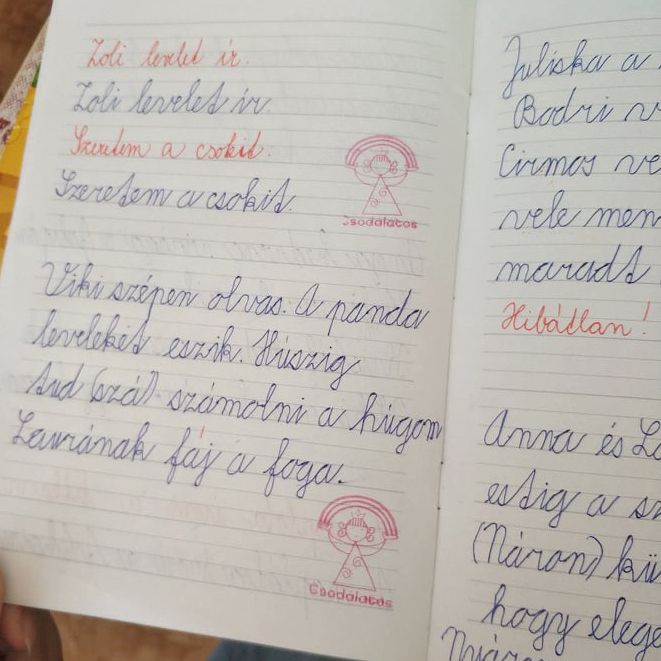 Zoli levelet ír.
Zoli levelet ír.
Szeretem a csokit.
Szeretem a csokit.
Csodálatos
Viki szépen olvas. A panda
leveleket eszik. Húszig
tud (szá) számolni a húgom
Laurának fáj a foga.
Csodálatos
Juliska a
Bodri
Cirmos
vele
maradt
Hibátlan!
Anna és
estig a
(Náron)
hogy